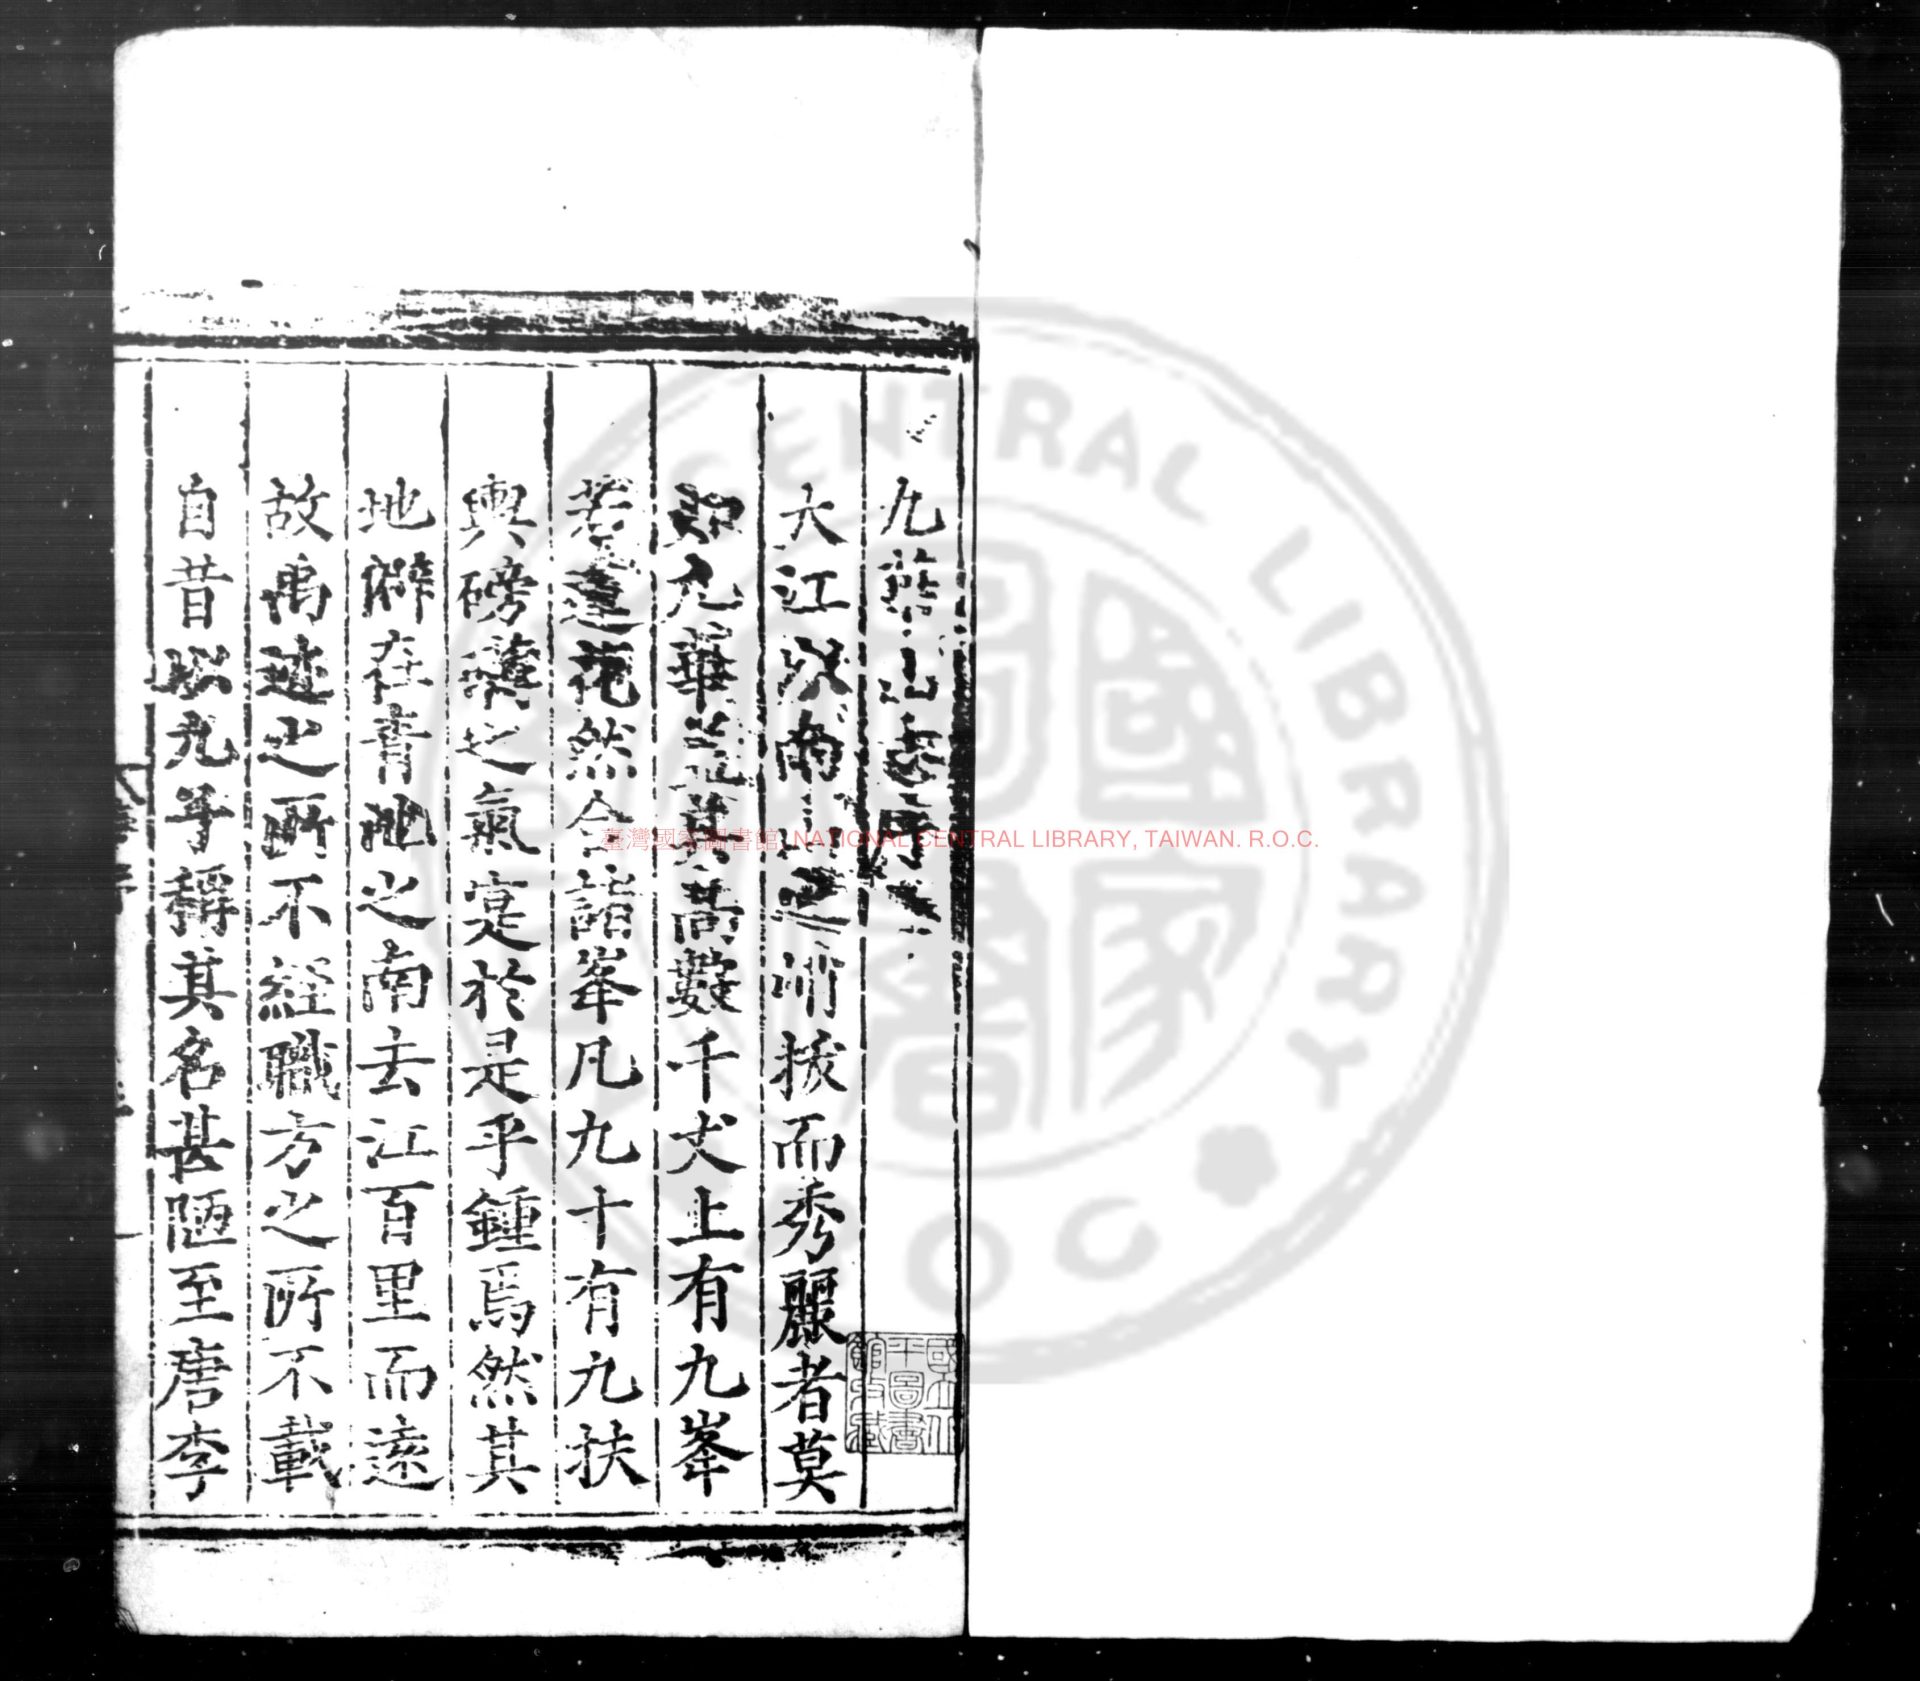 九華山志序
大江以南山之峭拔而秀麗者莫
如九華若其高數千丈上有九峯
若蓮花然合諸峯凡九十有九扶
輿磅礴之氣寔於是乎鍾焉然其
地僻在青池之南去江百里而遠
故禹迹之所不經職方之所不載
自昔以九子稱其名甚陋至唐李
國立北平圖書館收藏
臺灣國家圖書館, NATIONAL CENTRAL LIBRARY, TAIWAN. R.O.C.
CENTRAL LIBRARY
R.O.C
國家圖書